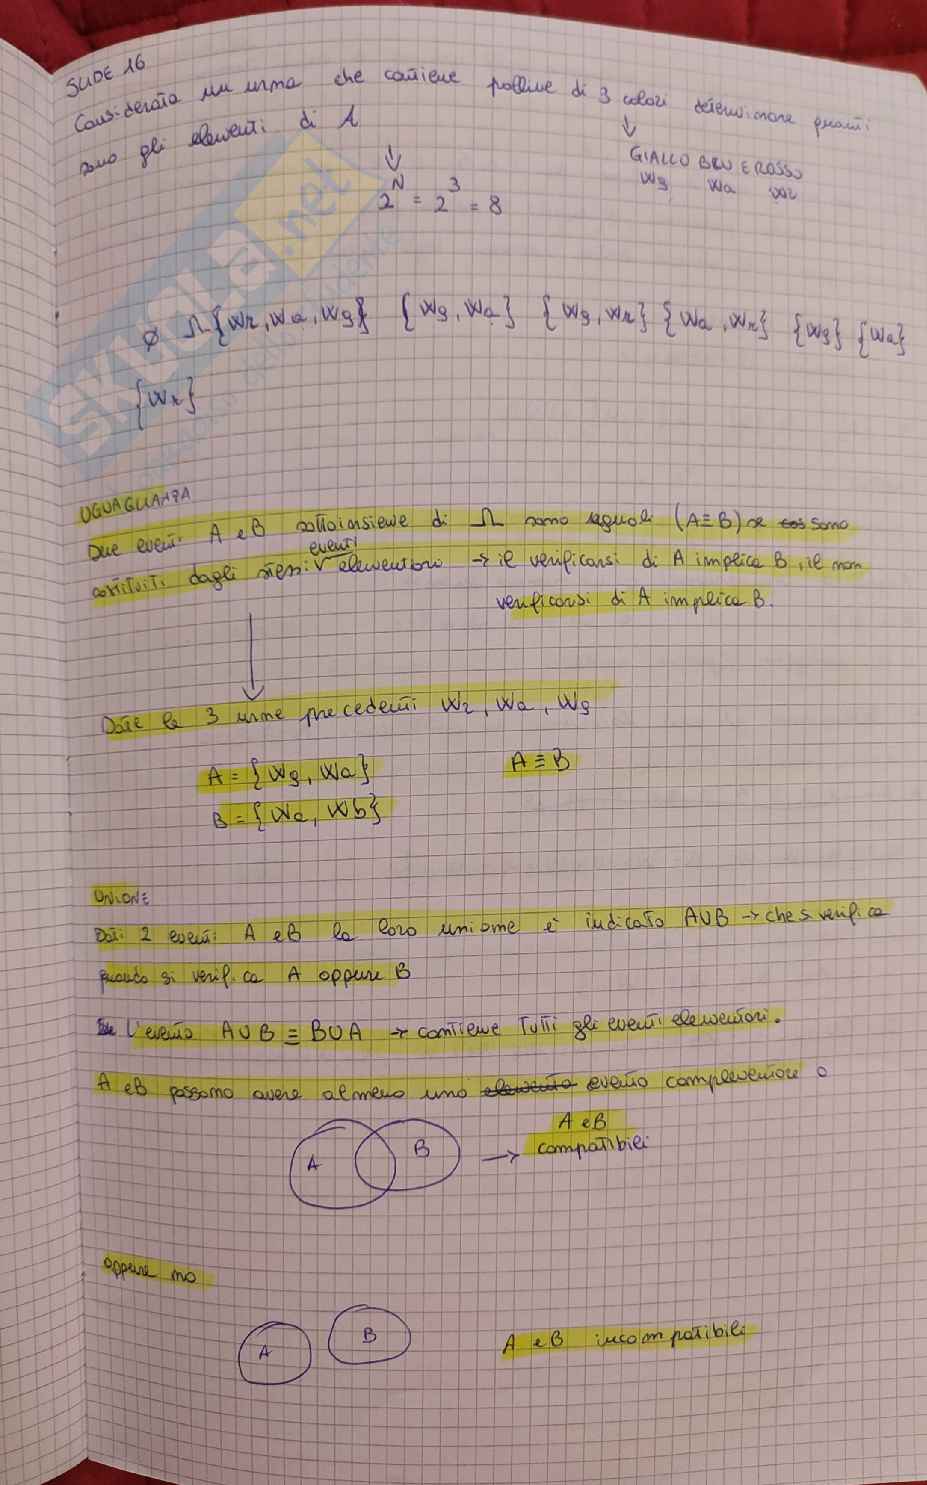 SLIDE 16
Considerata un urna che contiene palline di 3 colori determinare quanti
sono gli elementi di A
GIALLO BLU E ROSSO
Wg Wa Wr
2^N = 2^3 = 8
∅ Ω{Wr, Wa, Wg} {Wg, Wa} {Wg, Wr} {Wa, Wr} {Wg} {Wa}
{Wr}
UGUAGLIANZA
Due eventi A e B sottoinsieme di Ω sono uguali (A≡B) se sono
costituiti dagli stessi eventi elementari → il verificarsi di A implica B, il non
verificarsi di A implica B.
Date le 3 urne precedenti Wr, Wa, Wg
A = {Wg, Wa} A ≡ B
B = {Wa, Wb}
UNIONE
Dati 2 eventi A e B la loro unione è indicato A∪B → che si verifica
quando si verifica A oppure B
L'evento A∪B ≡ B∪A → contiene tutti gli eventi elementari.
A e B possono avere almeno uno elemento evento complementare o
A e B
compatibili
A B
oppure no
A B
A e B incompatibili
SKUOLA.net